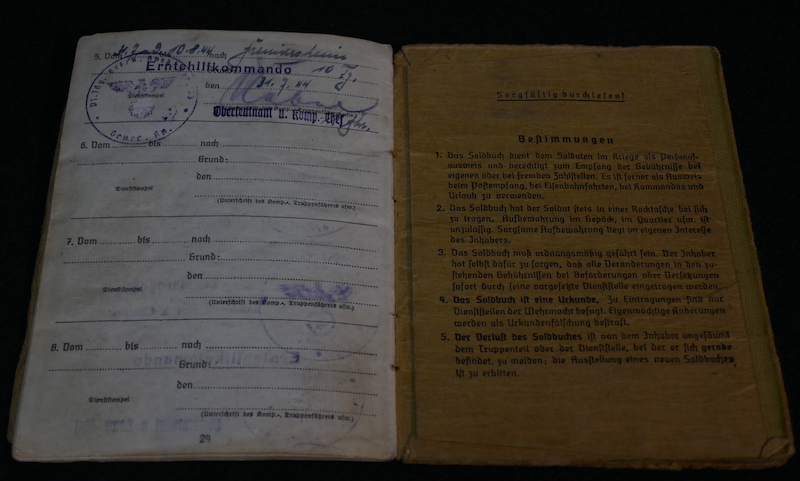 5. Vom 10.8.44 nach
Erntehilfkommando
10 Tg.
den 31.7.44
Oberleutnant u. Komp. Chef
6. Vom bis nach
Grund:
den
Dienststempel
(Unterschrift des Komp.-, Truppenführers usw.)
7. Vom bis nach
Grund:
den
Dienststempel
(Unterschrift des Komp.-, Truppenführers usw.)
8. Vom bis nach
Grund:
den
Dienststempel
(Unterschrift des Komp.-, Truppenführers usw.)
Sorgfältig durchlesen!
Bestimmungen
1. Das Soldbuch dient dem Soldaten im Kriege als Personal-
ausweis und berechtigt zum Empfang der Gebührnisse bei
eigenen oder bei fremden Zahlstellen. Es ist ferner als Ausweis
beim Postempfang, bei Eisenbahnfahrten, bei Kommandos und
Urlaub zu verwenden.
2. Das Soldbuch hat der Soldat stets in einer Rocktasche bei sich
zu tragen. Aufbewahrung im Gepäck, im Quartier usw. ist
unzulässig. Sorgsame Aufbewahrung liegt im eigenen Interesse
des Inhabers.
3. Das Soldbuch muß ordnungsmäßig geführt sein. Der Inhaber
hat selbst dafür zu sorgen, daß alle Veränderungen in den zu-
stehenden Gebührnissen bei Beförderungen oder Versetzungen
sofort durch seine vorgesetzte Dienststelle eingetragen werden.
4. Das Soldbuch ist eine Urkunde. Zu Eintragungen sind nur
Dienststellen der Wehrmacht befugt. Eigenmächtige Änderungen
werden als Urkundenfälschung bestraft.
5. Der Verlust des Soldbuches ist von dem Inhaber ungesäumt
dem Truppenteil oder der Dienststelle, bei der er sich gerade
befindet, zu melden; die Ausstellung eines neuen Soldbuches
ist zu erbitten.